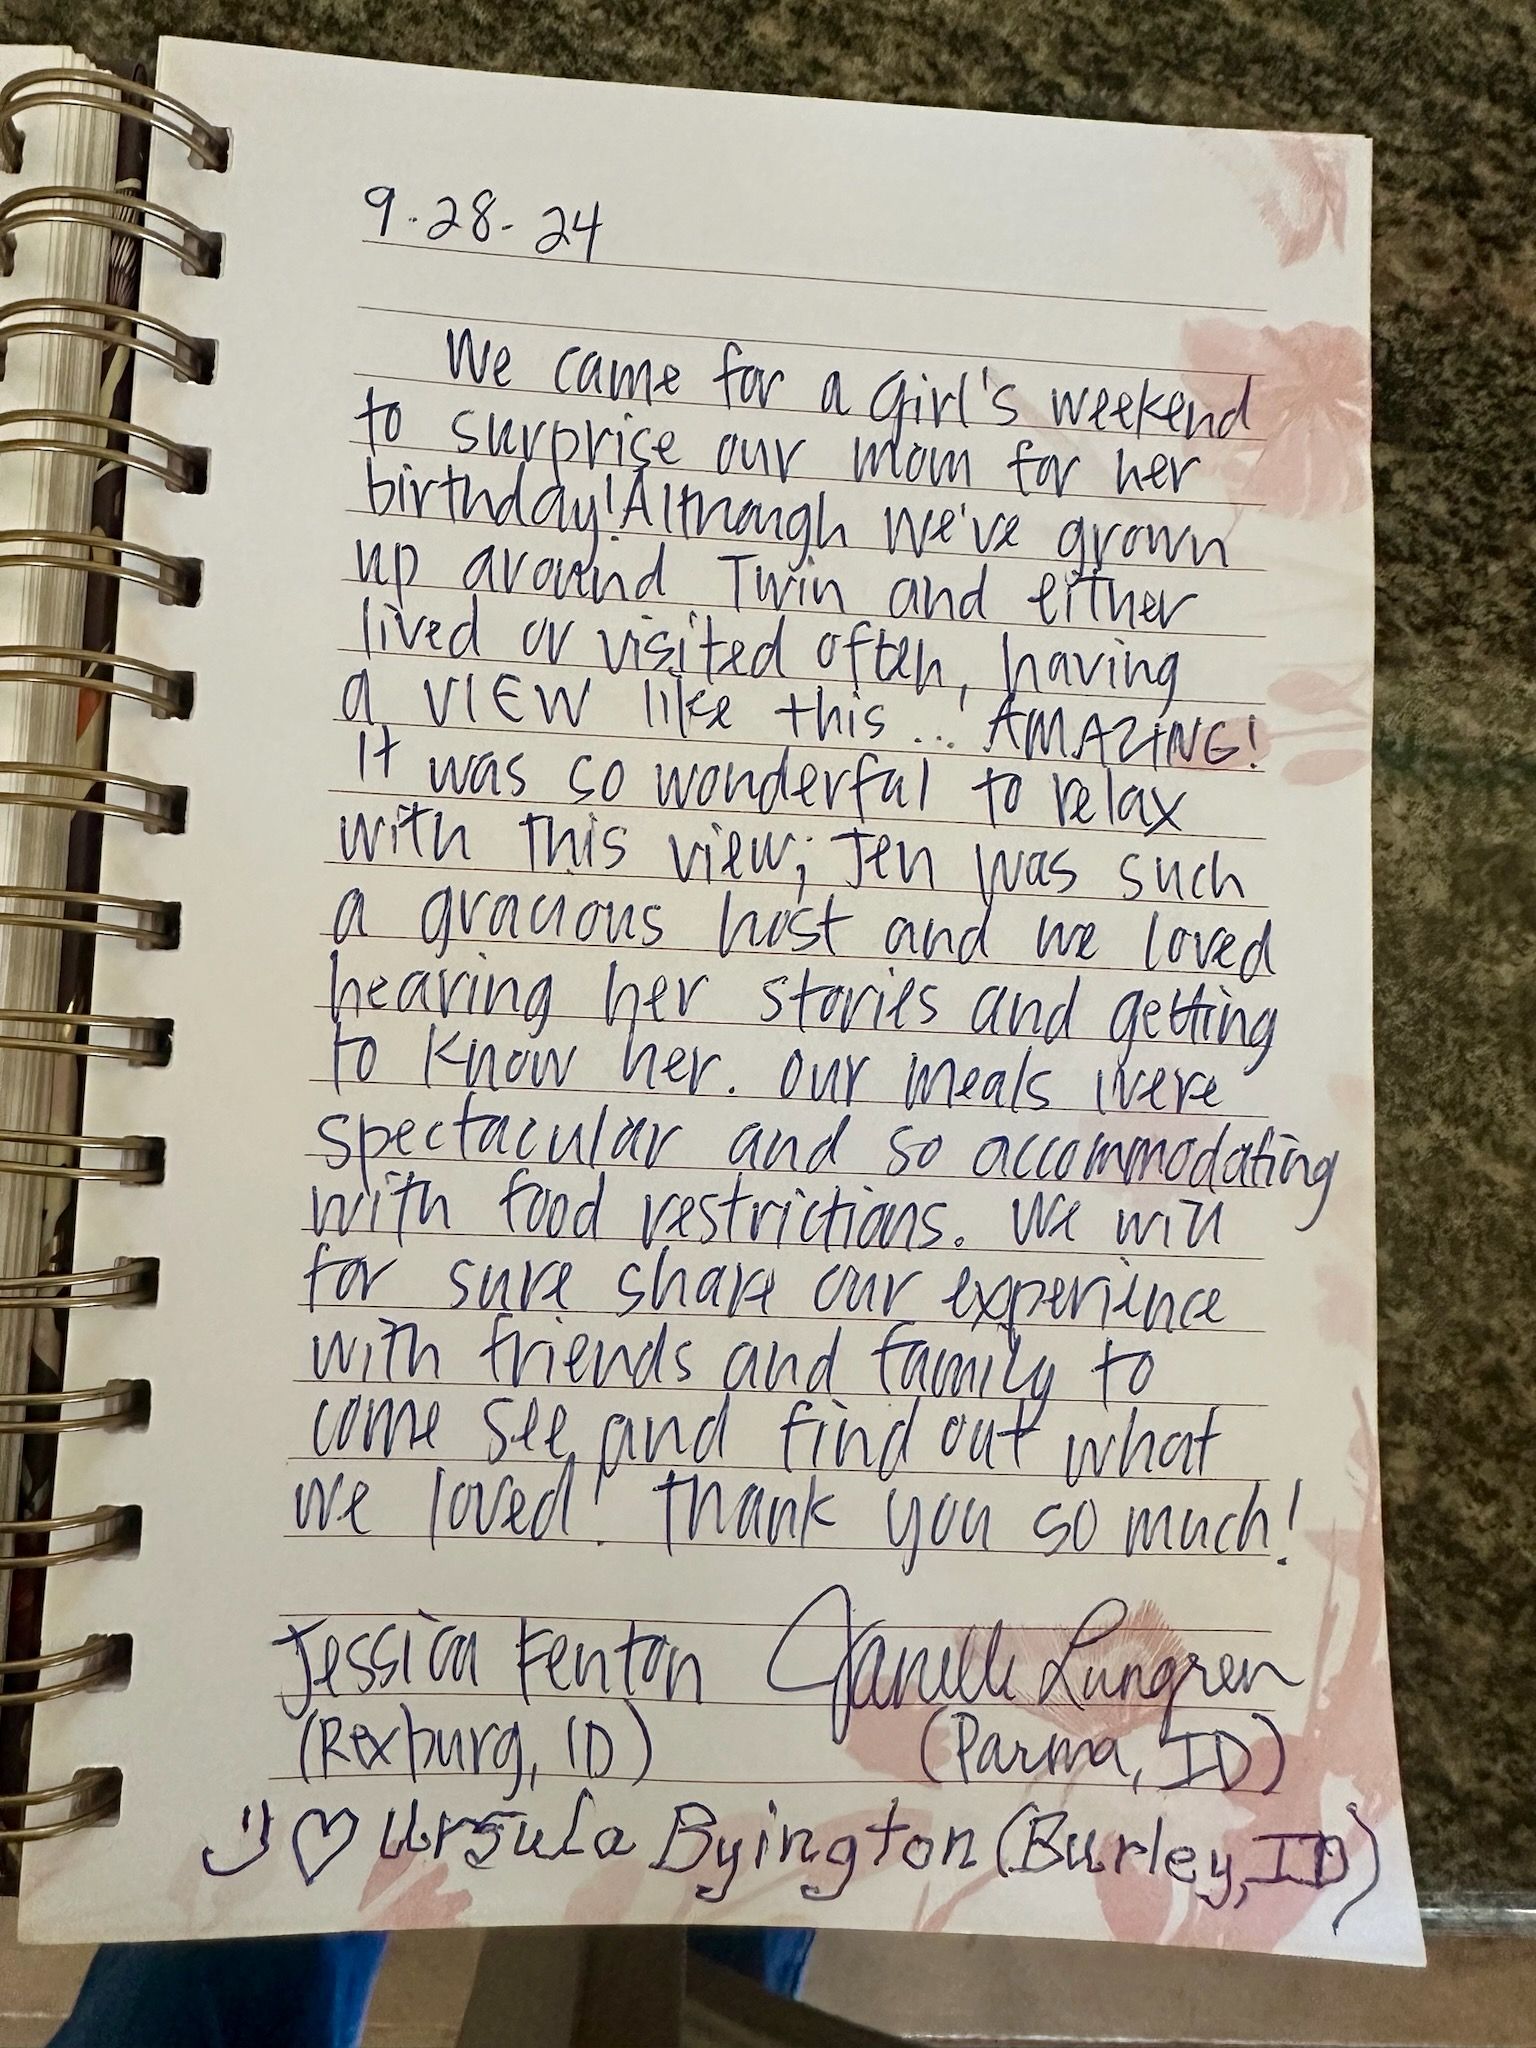 9-28-24
We came for a Girl's weekend
to surprise our mom for her
birthday! Although we've grown
up around Twin and either
lived or visited often, having
a VIEW like this... AMAZING!
It was so wonderful to relax
with this view; Jen was such
a gracious host and we loved
hearing her stories and getting
to know her. Our meals were
spectacular and so accommodating
with food restrictions. We will
for sure share our experience
with friends and family to
come see, and find out what
we loved! Thank you so much!
Jessica Fenton Janelle Lungren
(Rexburg, ID) (Parma, ID)
:) ♡ Ursula Byington (Burley, ID)